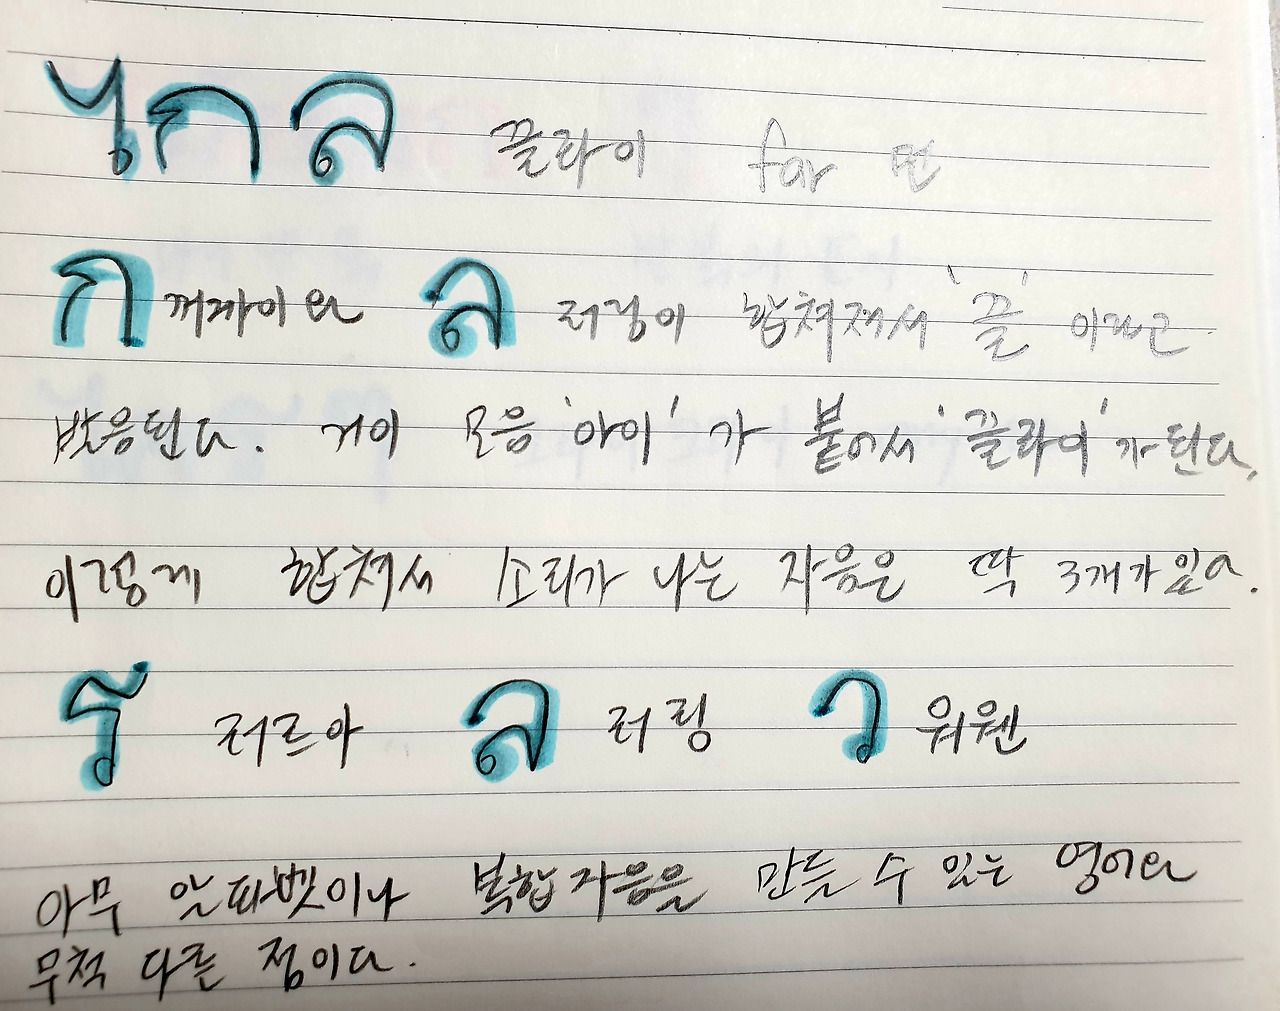 ไกล 끌라이 far 먼
ก 꺼까이와 ล 러링이 합쳐져서 '끌' 이라고
발음된다. 거이 모음 '아이' 가 붙어서 '끌라이' 가 된다.
이렇게 합쳐서 소리가 나는 자음은 딱 3개가 있다.
ร 러르아 ล 러링 ว 워웬
아무 알파벳이나 복합자음을 만들 수 있는 영어와
무척 다른 점이다.